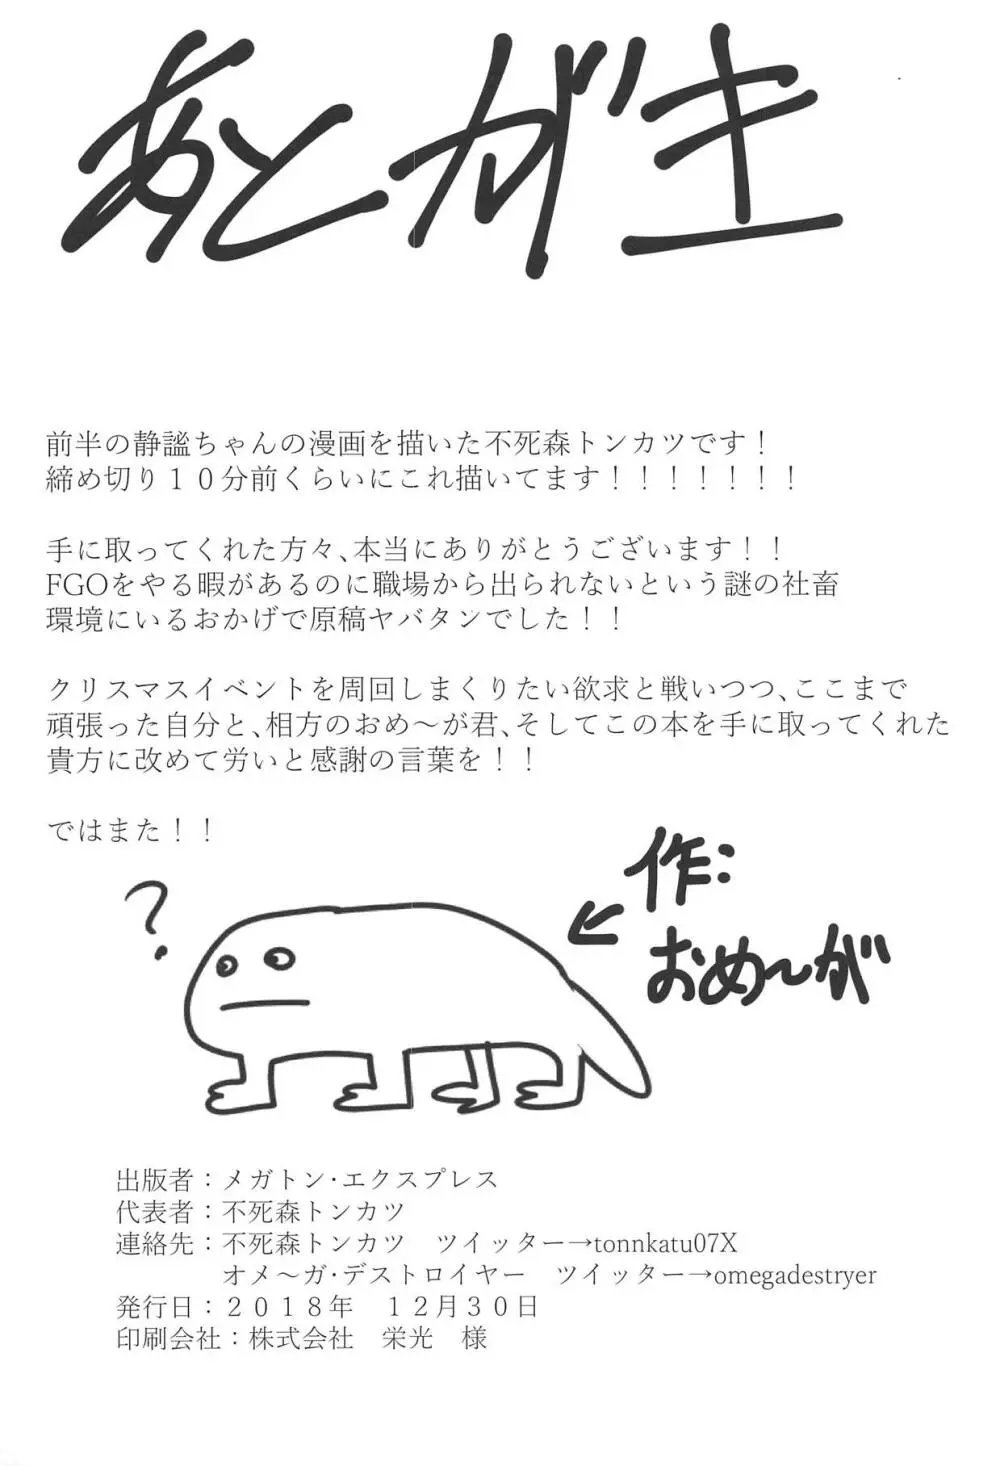 あとがき
前半の静謐ちゃんの漫画を描いた不死森トンカツです！
締め切り１０分前くらいにこれ描いてます！！！！！！！
手に取ってくれた方々、本当にありがとうございます！！
FGOをやる暇があるのに職場から出られないという謎の社畜
環境にいるおかげで原稿ヤバタンでした！！
クリスマスイベントを周回しまくりたい欲求と戦いつつ、ここまで
頑張った自分と、相方のおめ〜が君、そしてこの本を手に取ってくれた
貴方に改めて労いと感謝の言葉を！！
ではまた！！
?
←作:
おめ〜が
出版者：メガトン・エクスプレス
代表者：不死森トンカツ
連絡先：不死森トンカツ　ツイッター→tonnkatu07X
オメ〜ガ・デストロイヤー　ツイッター→omegadestryer
発行日：２０１８年　１２月３０日
印刷会社：株式会社　栄光　様